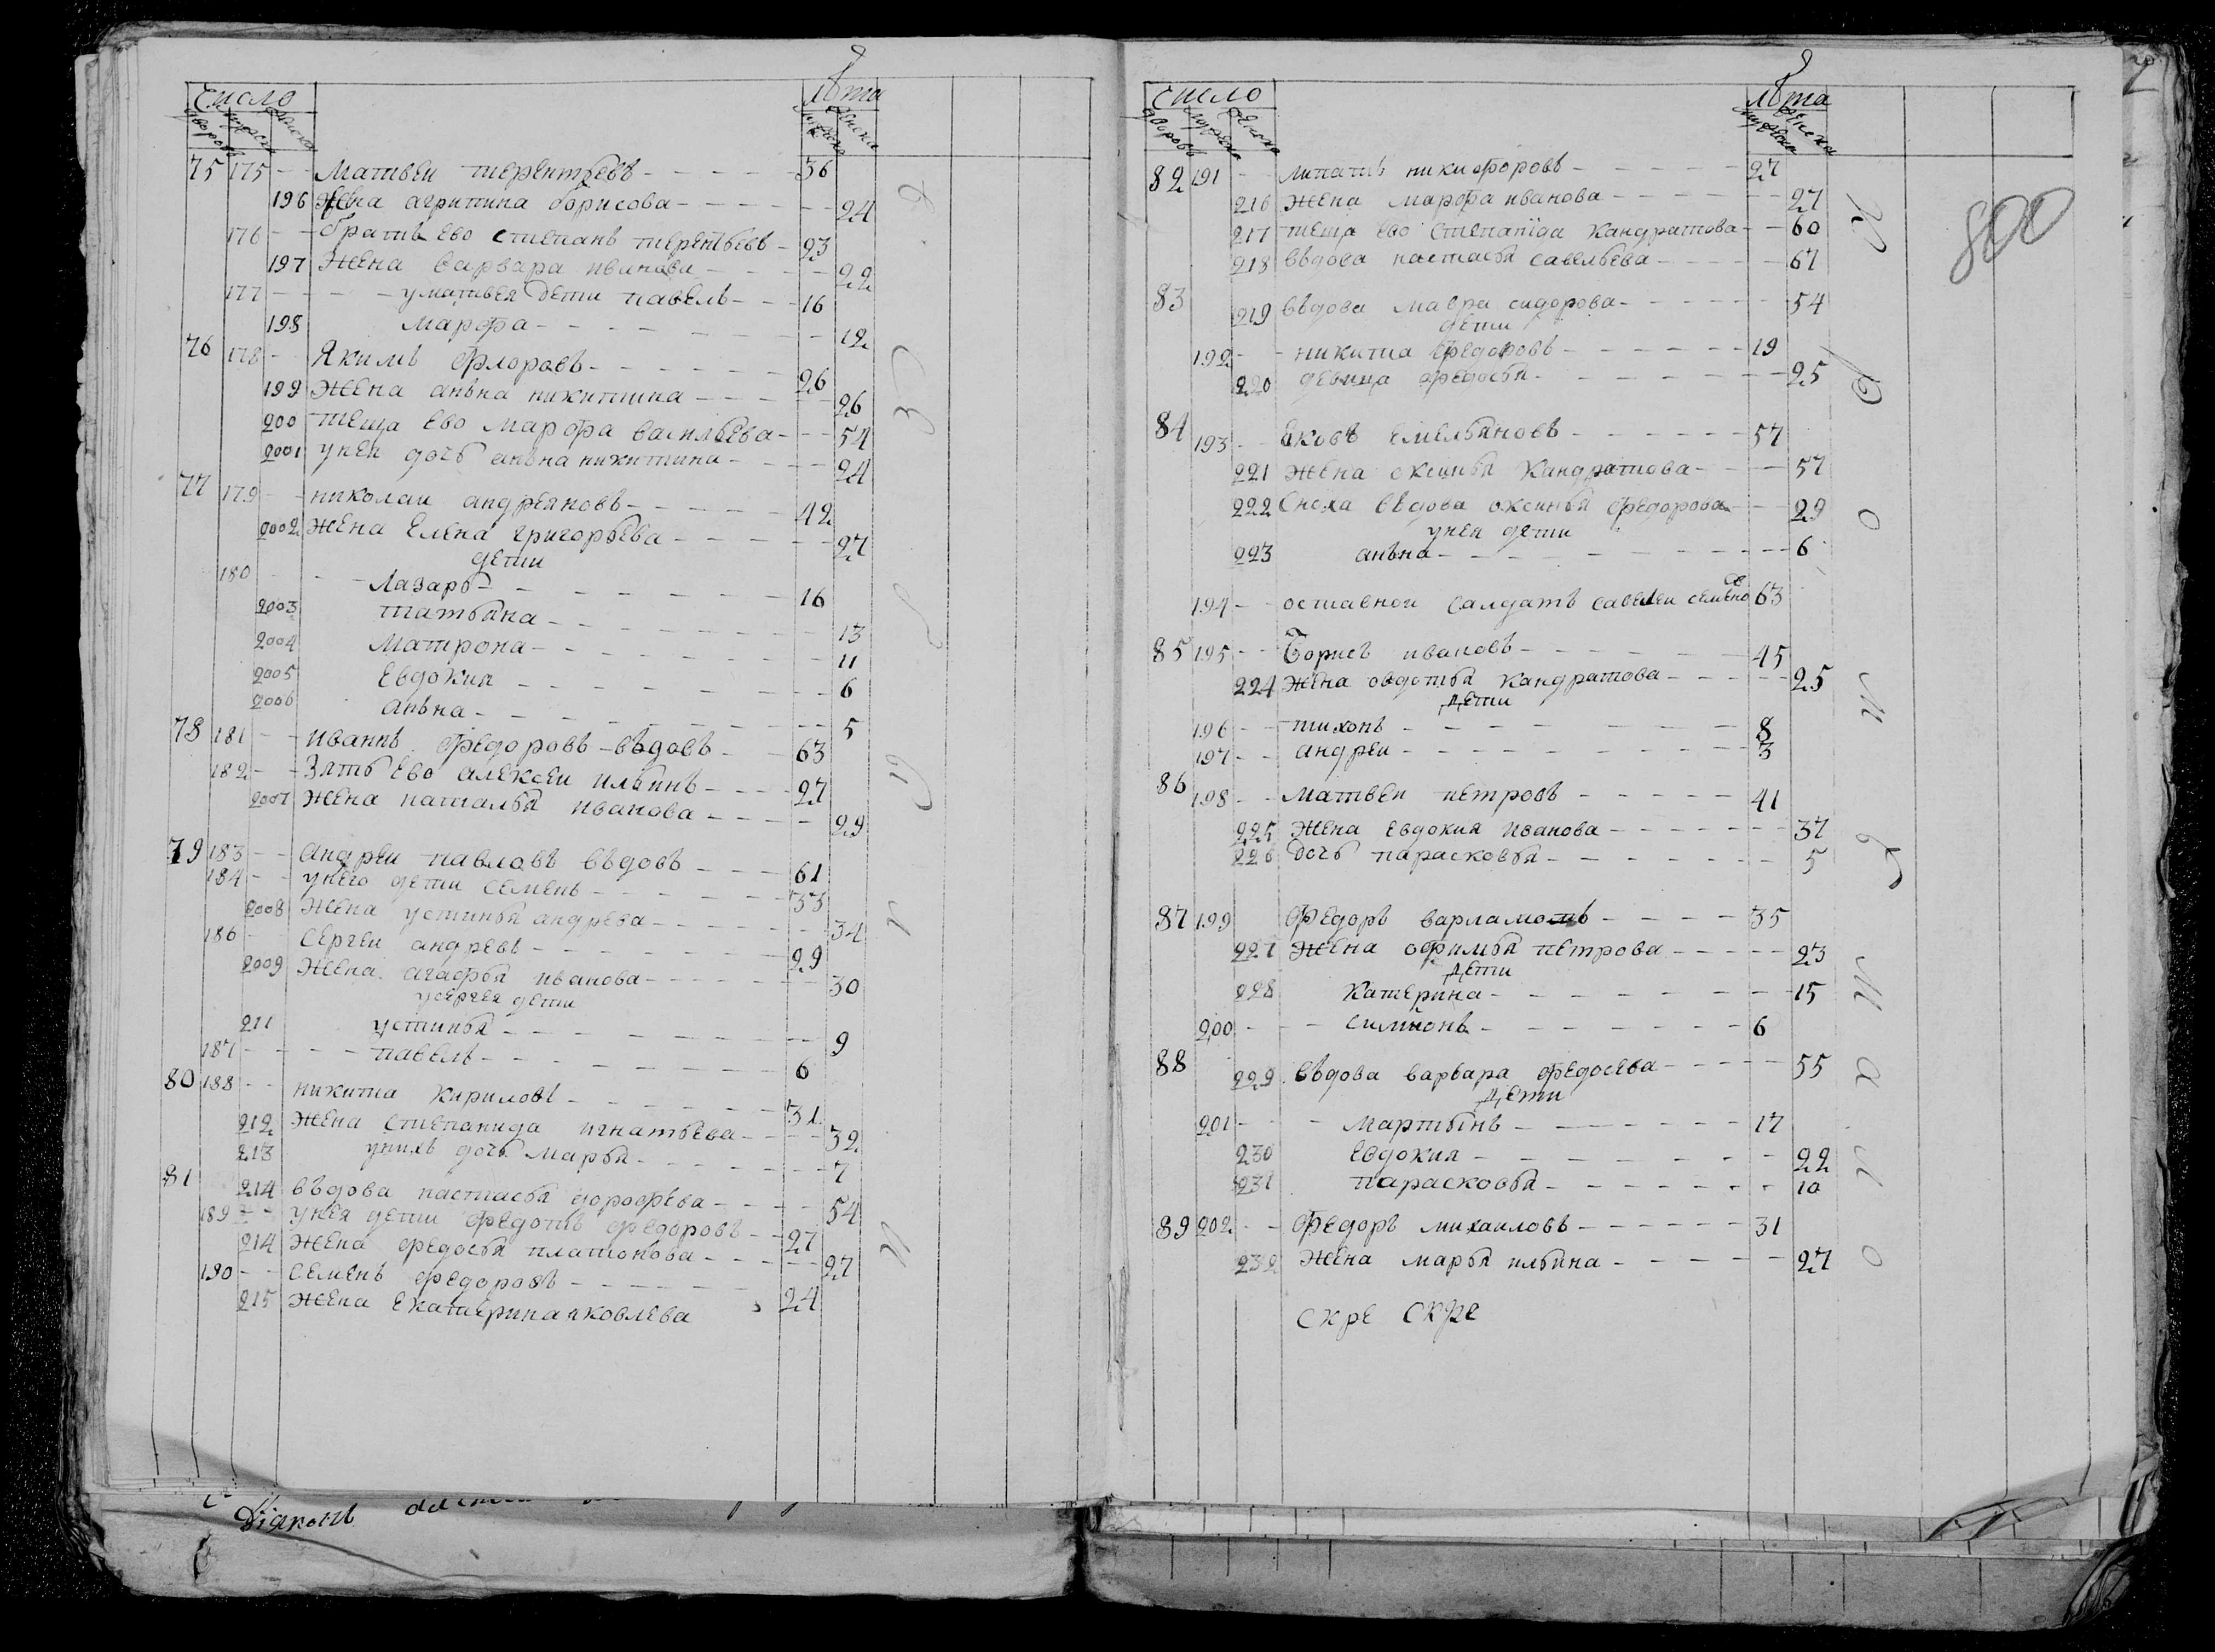 Число Лѣта
дворовъ мужеска женска мужеска женска
75 175 - - Матвеи терентьевъ - - - - - 36
196 жена агрипина борисова - - - - - - 24
176 - - братъ ево степанъ терентьевъ - 23
197 жена варвара иванова - - - - - 22
177 - - - - у матвея дети павелъ - - - 16
198 марфа - - - - - - - - 12
76 178 - - Якимъ флоровъ - - - - - - 26
199 жена анъна никитина - - - - - 26
200 теща ево марфа васильева - - - 54
2001 унеи дочь анъна никитина - - - - 24
77 179 - - николаи андреяновъ - - - - - 42
2002 жена елена григорьева - - - - - 27
дети
180 - - - Лазарь - - - - - - - 16
2003 татьяна - - - - - - - - 13
2004 матрона - - - - - - - - 11
2005 евдокия - - - - - - - - 6
2006 анъна - - - - - - - - 5
78 181 - - иванъ федоровъ - въдовъ - - 63
182 - - зять ево алексеи ильинъ - - - - 27
2007 жена наталья иванова - - - - 29
79 183 - - андреи павловъ въдовъ - - - 61
184 - - унего дети семенъ - - - - - - 33
2008 жена устинья андрева - - - - - - 34
186 - - сергеи андревъ - - - - - - - 29
2009 жена агафья иванова - - - - - - 30
усергея дети
211 устинья - - - - - - - - 9
187 - - - - павелъ - - - - - - - 6
80 188 - - никита кириловъ - - - - - - 31
212 жена степанида игнатьева - - - - 32
213 унихъ дочь марья - - - - - - - 7
81 214 въдова настасья дорофева - - - - 54
189 - - унея дети федотъ федоровъ - - 27
214 жена федосья платонова - - - - - 27
190 - - семенъ федоровъ - - - - - 24
215 жена екатерина яковлева
Число Лѣта
дворовъ мужеска женска мужеска женска
800
82 191 - - липатъ никифоровъ - - - - - - 27
216 жена марфа иванова - - - - - - 27
217 теща ево степанїда кандратова - - 60
218 въдова настасья савельева - - - - - 67
83 219 въдова мавра сидорова - - - - - - 54
дети
192 - - никита федоровъ - - - - - - 19
220 девица федосья - - - - - - - 25
84 193 - - яковъ емельяновъ - - - - - - 57
221 жена оксинья кандратова - - - - 57
222 сноха въдова оксинья федорова - - 29
унеи дети
223 анъна - - - - - - - - - 6
194 - - оставнои салдатъ савелеи семено въ 63
85 195 - - борисъ ивановъ - - - - - - 45
224 жена овдотья кандратова - - - - - 25
дети
196 - - тихонъ - - - - - - - 8
197 - - андреи - - - - - - - - 3
86 198 - - матвеи петровъ - - - - - 41
225 жена евдокия иванова - - - - - - - 37
226 дочь парасковья - - - - - - - 5
87 199 федоръ варламовъ - - - - 35
227 жена офимья петрова - - - - - 23
дети
228 катерина - - - - - - - - 15
200 - - - симионъ - - - - - - - 6
88 229 въдова варвара федосева - - - - - 55
дети
201 - - - мартынъ - - - - - - - 17
230 евдокия - - - - - - - - 22
231 парасковья - - - - - - - 10
89 202 - - федоръ михаиловъ - - - - - - 31
232 жена марья ильина - - - - - 27
скре скре
Дїаконъ